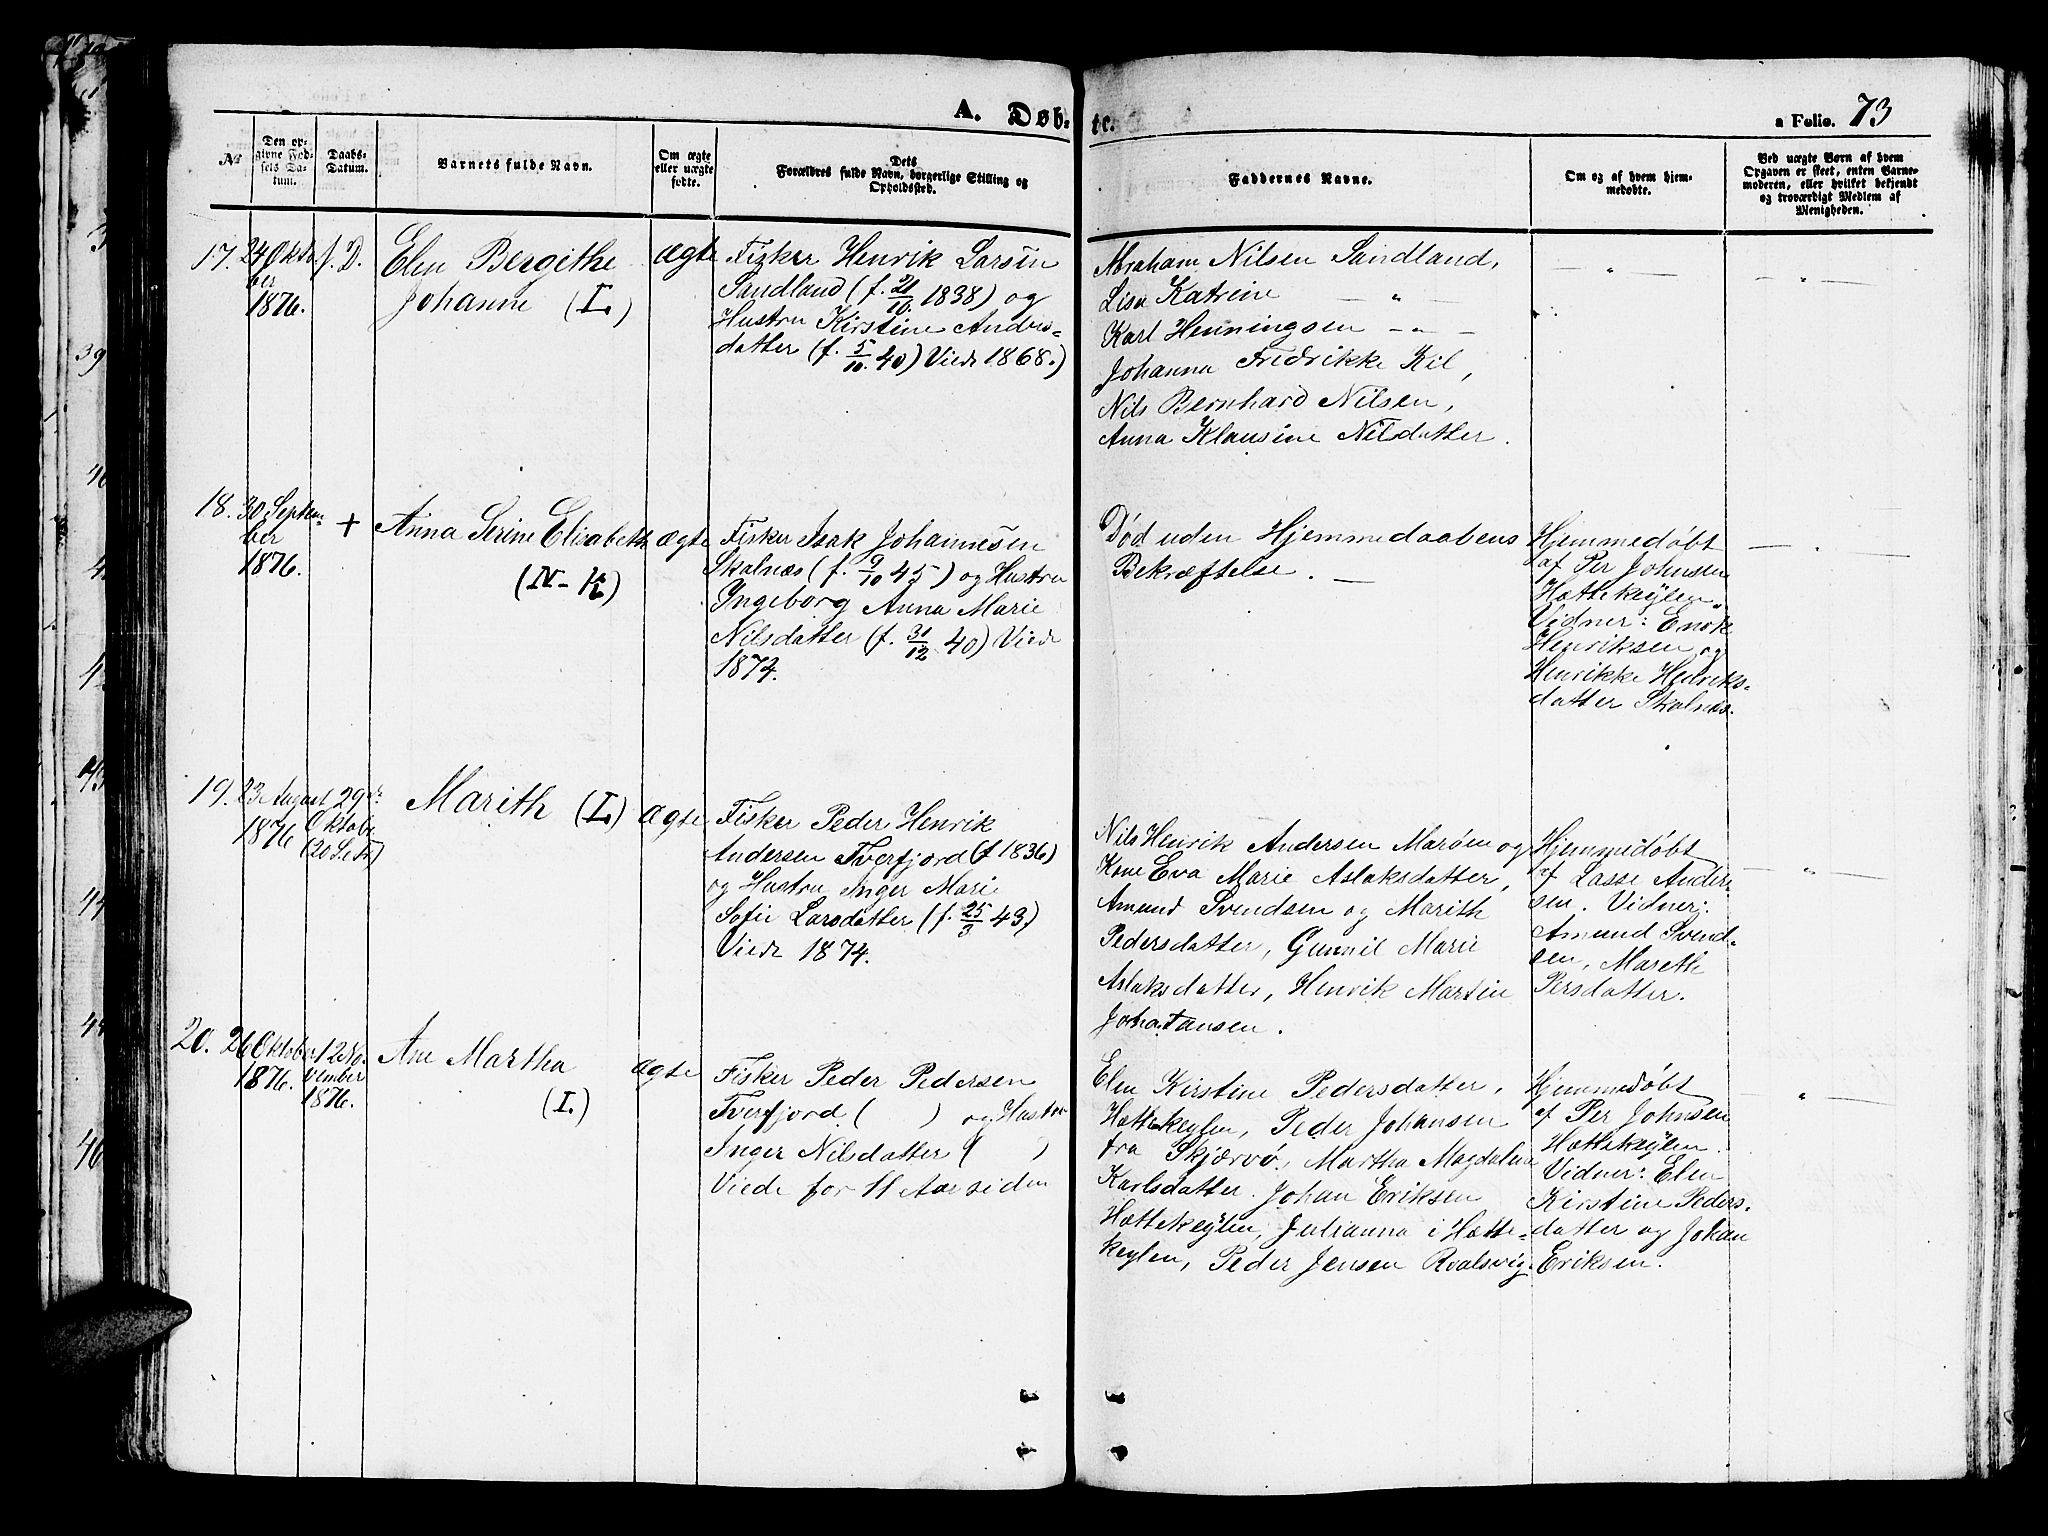 A. Døb-
te.
a Folio. 73
No
Den op-
givne Fød-
sels Da-
tum.
Daabs-
Datum.
Barnets fulde Navn.
Om ægte
eller uægte
fødte.
Dets
Forældres fulde Navn, borgerlige Stilling og
Opholdssted.
Faddernes Navne.
Om og af hvem hjem-
medøbte.
Ved uægte Børn af hvem
Opgaven er skeet, enten Barne-
moderen, eller hvilket bekjendt
og troværdigt Medlem af
Menigheden.
17.
24 Okto
ber
1876.
f. D.
Elen Bergithe
Johanne (L.)
ægte
Fisker Henrik Larsen
Sandland (f. 21/10 1838) og
Hustru Kirstine Anders-
datter (f. 5/10. 40) Viede 1868.)
Abraham Nilsen Sandland,
Lisa Katrine — " —
Karl Henningsen — " —
Johanna Fredrikke Kil,
Nils Bernhard Nilsen,
Anna Klausine Nilsdatter.
— " —
— " —
18.
30 Septem-
ber
1876.
+
Anna Serine Elisabeth
(N-K)
ægte
Fisker Isak Johannesen
Skalnæs (f. 9/10 45) og Hustru
Ingeborg Anna Marie
Nilsdatter (f. 31/12 40) Viede
1874.
Død uden Hjemmedaabens
Bekræftelse. —
Hjemmedøbt
af Per Johnsen
Hættekeylen.
Vidner: Enok
Henriksen og
Henrikke Henriks-
datter Skalnæs.
— " —
19.
23 August
1876
29de
Oktobr
(20 S.e.Tr)
Marith (L.)
ægte
Fisker Peder Henrik
Andersen Tverfjord (f 1836)
og Hustru Inger Marie
Sofie Larsdatter (f. 25/3 43)
Viede 1874.
Nils Henrik Andersen Marøen og
Kone Eva Marie Aslaksdatter,
Amund Svendsen og Marith
Pedersdatter, Gunnil Marie
Aslaksdatter, Henrik Martin
Johatansen.
Hjemmedøbt
af Lasse Ander
sen. Vidner:
Amund Svend-
sen, Mareth
Persdatter.
— " —
20.
26 Oktober
1876.
12 No-
vember
1876.
Ane Martha
(I.)
ægte
Fisker Peder Pedersen
Tverfjord ( ) og Hustru
Inger Nilsdatter ( )
Viede for 11 Aar siden
Elen Kirstine Pedersdatter,
Hættekeylen, Peder Johansen
fra Skjærvø, Martha Magdalena
Karlsdatter. Johan Eriksen
Hættekeylen, Julianna i Hætte-
keylen, Peder Jensen Roalsvig.
Hjemmedøbt
af Per Johnsen
Hættekeylen.
Vidner: Elen
Kirstine Peders-
datter og Johan
Eriksen.
— " —
39
43
44
46